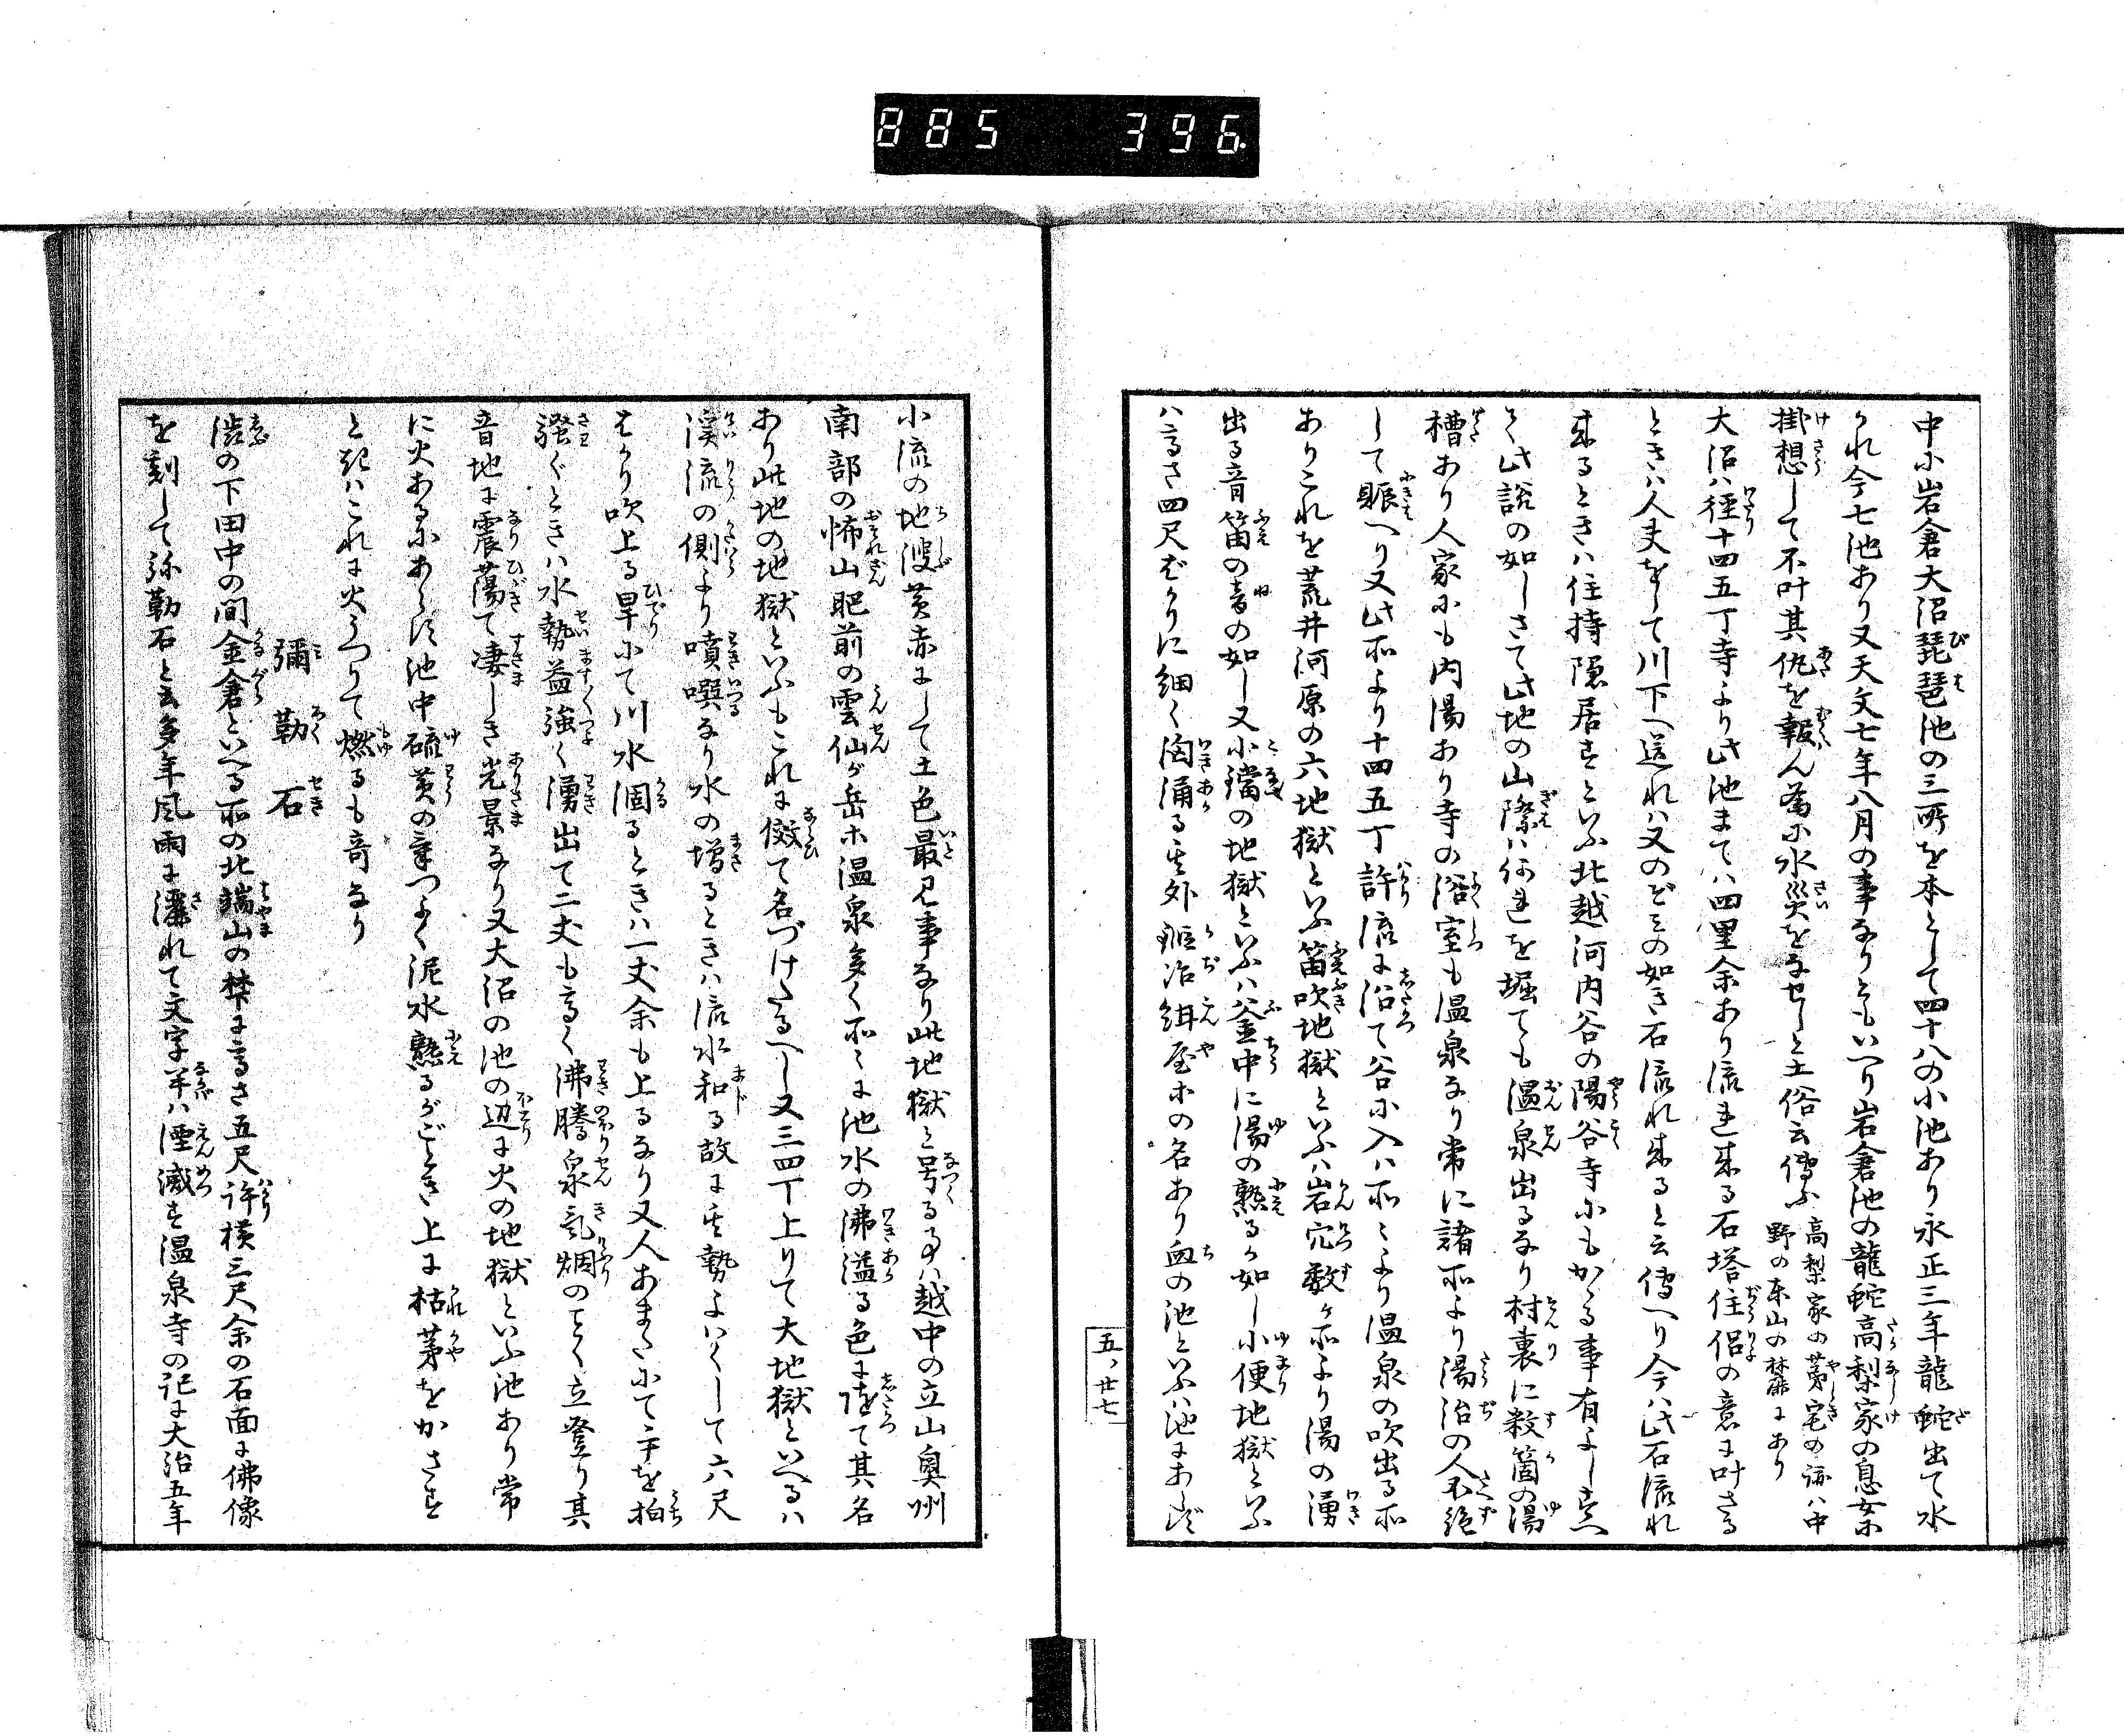 885 396
中に岩倉大沼琵琶池の三所を本として四十八の小池あり永正三年龍蛇出て水
れ今七池あり又天文七年八月の事なりともいへり岩倉池の龍蛇高梨家の息女
掛想して不叶其仇を報ん為に水災をなせしと土俗云傳ふ高梨家の茅宅の跡ハ中
野の東山の林麓にあり
大沼ハ径十四五丁寺より此池まてハ四里余あり流連来る石塔住侶の意に叶さる
ときハ人夫をして川下へ送れハ又のぞみの如き石流れ来ると云傳へり今ハ此石流れ
来るときハ住持隠居すといふ北越河内谷の陽谷寺にもかゝる事有よし
く此説の如しさて此地の山際ハ何連を堀ても温泉出るなり村裏に数箇の湯
槽あり人家にも内湯あり寺の浴室も温泉なり常に諸所より湯治の人不絶
して賑へり又此所より十四五丁許流に沿て谷に入ハ所々より温泉の吹出る所
ありこれを荒井河原の六地獄といふ笛吹地獄といふハ岩穴数ヶ所より湯の湧
出る音笛の音の如し又小鐺の地獄といふハ釜中に湯の熟るか如し小便地獄といふ
ハ高さ四尺ばかりに細く涌る其外鍛冶紺屋等の名あり血の池といふハ池にあらず
五ノ廿七
小流の地渋黄赤にして土色最見事なり此地獄と号るハ越中の立山奥州
南部の怖山肥前の雲仙が岳等温泉多く所々に池水の沸溢る色に随て其名
あり此地の地獄といふもこれに傚て名づけたるべし又三四丁上りて大地獄といへるハ
渓流の側より噴噀なり水の増るときハ流水和る故に其勢よハくして六尺
ばかり吹上る旱にて川水涸るときハ一丈余も上るなり又人あまたにて手を拍
騒ぐときハ水勢益強く湧出て二丈も高く沸騰泉気烟のごとく立登り其
音地に震蕩て凄しき光景なり又大沼の池の辺に火の地獄といふ池あり常
に火あるにあらず池中硫黄の気つよく泥水熟るがごとき上に枯茅をかざす
ときハこれに火うつりて燃るも奇なり
彌勒石
渋の下田中の間金倉といへる所の北端山の林に高さ五尺許横三尺余の石面に佛像
を刻して弥勒石と云多年風雨に灑れて文字半ハ湮滅す温泉寺の記に大治五年